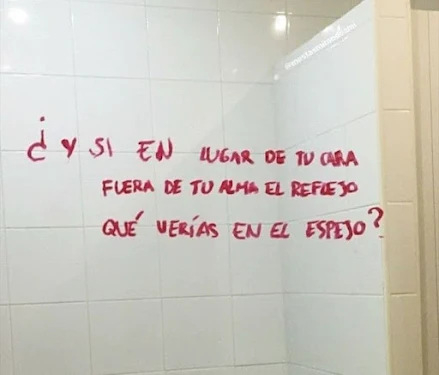 ¿Y SI EN LUGAR DE TU CARA
FUERA DE TU ALMA EL REFLEJO
QUÉ VERÍAS EN EL ESPEJO?